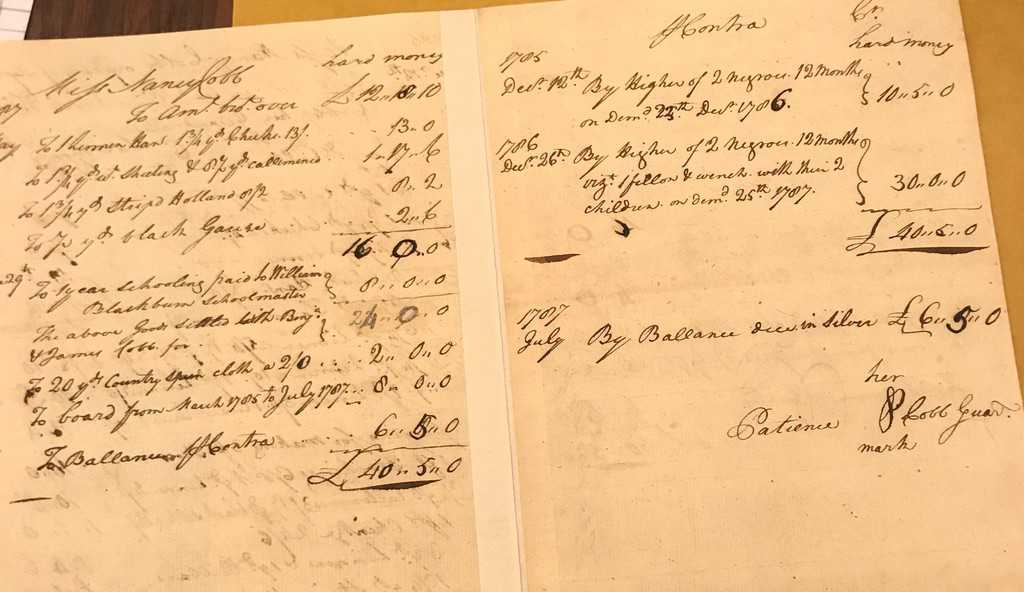 hard money
Miss Nancy Cobb
To Amt. brt. over £ 12 " 18 " 10
To 1 Linnen Han. 1 3/4 yd Check 13/. 13 " 0
To 13/4 yd. Shaling & 8 1/2 yd callemineo 1 " 17 " 6
To 1 3/4 yd Strip'd Holland 8 " 2
To yd black Gause 2 " 6
16 " 0
29th To 1 year schooling paid to William
Blackburn schoolmaster 8 " 0 " 0
The above Goods settled with Benja.
& James Cobb. for 24 " 0 " 0
To 20 yd Country cloth a 2/0 2 " 0 " 0
To board from March 1785 to July 1787 8 " 0 " 0
To Ballance pr Contra 6 " 5 " 0
£ 40 " 5 " 0
pr Contra Cr.
hard money
1785
Decr. 12th By Higher of 2 negroes. 12 Months
on Demd. 25th Decr. 1786. 10 " 5 " 0
1786
Decr. 26th By Higher of 2 Negroes. 12 months
vizt. 1 fellow & wench with their 2
children on demd. 25th 1787. 30 " 0 " 0
£ 40 " 5 " 0
1787
July By Ballance due in Silver £ 6 " 5 " 0
her
Patience P Cobb Guar.
mark